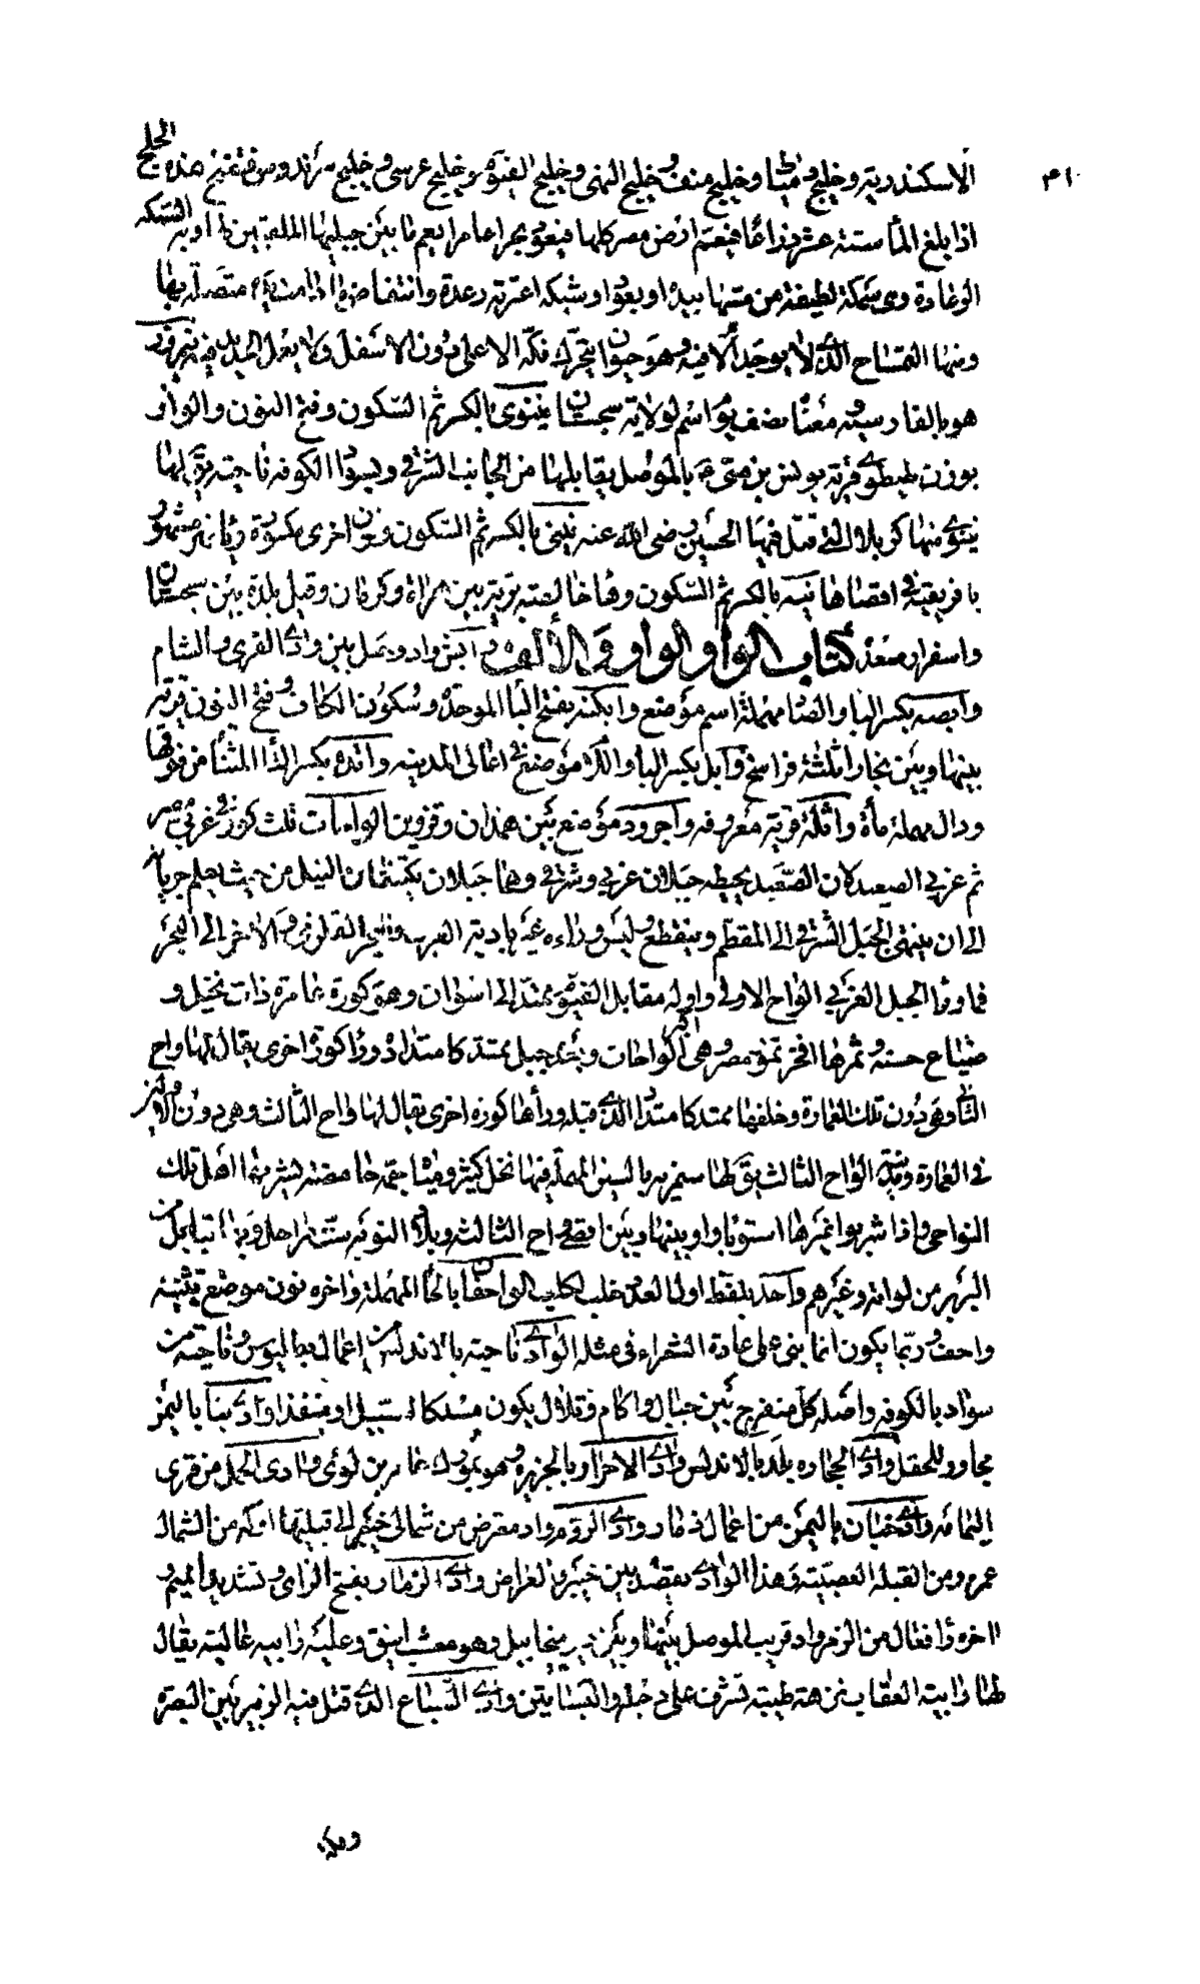 الاسكندرية وخليج دمياط وخليج منف وخليج المنهى وخليج الفيوم وخليج عرسى وخليج سردوس فتفتح هذه الخلج
اذا بلغ الماء ستة عشر ذراعا فيعم ارض مصر كلها فيعود بحرا عامرا يعم ما بين جبليها وبه السمكة
الرعادة وهى سمكة لطيفة من مسها بيده او بعود او شبكة اعترته رعدة وانتفاض ما دامت متصلة بها
ومنها التمساح الذى لا يوجد الا فيه وهو حيوان يتحرك فكه الاعلى دون الاسفل ولا يعمل الحديد فيه نيمروز
هو بالفارسية معناه نصف يوم اسم لولاية سجستان نينوى بالكسر ثم السكون وفتح النون والواو
بوزن طيطوى قرية يونس بن متى ع م بالموصل يقابلها من الجانب الشرقى وبسواد الكوفة ناحية يقال لها
نينوى منها كربلا التى قتل فيها الحسين رضى الله عنه نينى بالكسر ثم السكون ونون اخرى مكسورة وياء نهر مشهور
بافريقية فى اقصاها نيه بالكسر ثم السكون وهاء خالصة قرية بين هراة وكرمان وقيل بلدة بين سجستان
واسفراز منعد كتاب الواو الواو والالف وابش واد وجبل بين وادى القرى والشام
وابصه بكسر الباء والصاد مهملة اسم موضع وابكنه بفتح الباء الموحدة وسكون الكاف وفتح النون قرية
بينها وبين بخارا ثلثة فراسخ وابل بكسر الباء واللام موضع فى اعالى المدينه واتده بكسر التاء المثناة من فوقها
ودال مهملة ماءة واثلة قرية معروفه واجرود موضع بين همذان وقزوين الواحات ثلث كور فى غربى مصر
ثم غربى الصعيد لان الصعيد يحيطه جبلان غربى وشرقى وهما جبلان يكتنفان النيل من حيث يعلم جريانه
الى ان ينتهى الجبل الشرقى الى المقطم وينقطع وليس وراءه غير بادية العرب وبحر القلزم والاخر الى البحر
فما وراء الجبل الغربى الواح الاولى واوله مقابل الفيوم ممتد الى اسوان وهو كورة عامرة ذات نخيل و
ضياع حسنة وثمرها افخر تمور مصر وهى اكبر الواحات وبعده جبل ممتد كامتداده وراءه كورة اخرى يقال لها واح
الثانى وهى دون تلك العمارة وخلفها ممتد كامتداد الذى قبله وراءها كورة اخرى يقال لها واح الثالث وهى دون الاولين
فى العمارة ومدينة الواح الثالث يق لها سنتريه بالسين المهملة فيها نخل كثير ومياه جمة حامضة يشرب منها اهل تلك
النواحى واذا شربوا غيرها استوبأوا وبينها وبين اقصى واح الثالث وبلاد النوبه ست مراحل وبها قبايل من
البربر من لواتة وغيرهم واحد بلفظ اول العدد جبل لكلب الواحفان بالحاء المهملة واخره نون موضع تثنية
واحف وربما يكون انما بنى على عادة الشعراء فى مثله الوادى ناحية بالاندلس من اعمال بطليوس وناحية من
سواد بالكوفه واصله كل منفرج بين جبال واكام وتلال يكون مسلكا للسيل او منفذا وادى بنا باليمن
مجاور للحقل وادى الحجاره بلد بالاندلس وادى الاحرار بالجزيرة وهو يزيد عامر بن لوئى وادى الجمل من قرى
اليمامه وادى خبان باليمن من اعمال ذمار وادى الروم واد معترض من شمالى خيبر الى قبليها امكه من الشمال
عمره ومن القبله العصيبة وهذا الوادى يفصل بين خيبر والعراض وادى الزمار بفتح الزاى وتشديد الميم و
اخره راء فعال من الزمر واد قريب الموصل بينها وبين دير ميخاييل وهو معشب انيق وعليه رابية عالية يقال
لها رابية العقاب نزهة طيبة تشرف على دجلة والبساتين وادى السباع الذى قتل فيه الزبير بين البصرة